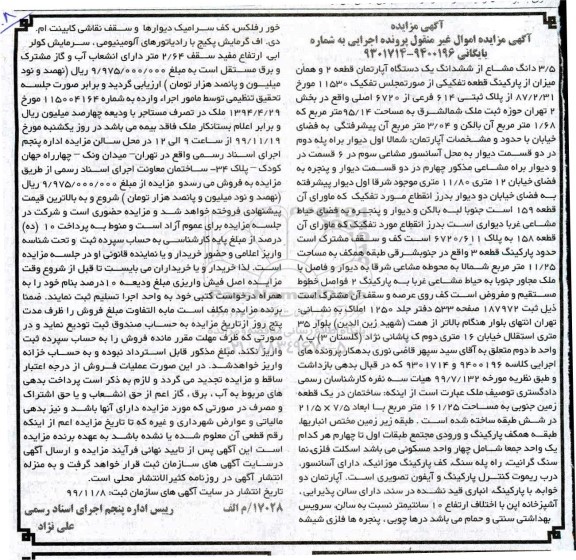 آگهی مزایده
آگهی مزایده اموال غیر منقول پرونده اجرایی به شماره
بایگانی ۹۴۰۰۱۹۶-۹۳۰۱۷۱۴
۳/۵ دانگ مشاع از ششدانگ یک دستگاه آپارتمان قطعه ۲ و همان
میزان از پارکینگ قطعه تفکیکی از صورتمجلس تفکیک ۱۱۵۳۰ مورخ
۸۷/۲/۳۱ از پلاک ثبتی ۶۱۴ فرعی از ۶۷۲۰ اصلی واقع در بخش
۲ تهران حوزه ثبت ملک شمالشرق به مساحت ۹۵/۱۴متر مربع که
۱/۶۸ متر مربع آن بالکن و ۳/۰۴ متر مربع آن پیشرفتگی به فضای
خیابان با حدود و مشخصات آپارتمان: شمالا اول دیوار براه پله دوم
در دو قسمت دیوار به محل آسانسور مشاعی سوم در ۶ قسمت در
و دیوار براه مشاعی مذکور چهارم در دو قسمت دیوار و پنجره به
فضای خیابان ۱۲ متری ۱۱/۸۰ متری موجود شرقا اول دیوار پیشرفته
به فضای خیابان دو دیوار بدرز انقطاع مورد تفکیک که ماورای آن
قطعه ۱۵۹ است جنوبا لبه بالکن و دیوار و پنجره به فضای حیاط
مشاعی غربا دیواری است بدرز انقطاع مورد تفکیک که ماورای آن
قطعه ۱۵۸ به پلاک ۶۷۲۰/۶۱۱ است کف و سقف مشترک است
حدود پارکینگ قطعه ۳ واقع در جنوبشرقی طبقه همکف به مساحت
۱۱/۲۵ متر مربع شمالا به محوطه مشاعی شرقا به دیوار و فاصل با
ملک مجاور جنوبا به حیاط مشاعی غربا به پارکینگ ۲ فواصل خطوط
مستقیم و مفروض است کف روی عرصه و سقف آن مشترک است
ذیل ثبت ۱۸۷۹۷۲ صفحه ۵۳۳ دفتر جلد ۱۲۵۰ املاک به نشانی:
تهران انتهای بلوار هنگام بالاتر از همت (شهید زین الدین) بلوار ۳۵
متری استقلال خیابان ۱۶ متری دوم ک پاشائی نژاد (گلستان ۳) پ ۸
واحد ط دوم متعلق به آقای سید سپهر قاضی نوری بدهکار پرونده های
اجرایی کلاسه ۹۴۰۰۱۹۶ و ۹۳۰۱۷۱۴ که در قبال بدهی بازداشت
و طبق نظریه مورخه ۹۹/۷/۱۳۲ هیات سه نفره کارشناسان رسمی
دادگستری توصیف ملک عبارت است از اینکه: ساختمان در یک قطعه
زمین جنوبی به مساحت ۱۶۱/۲۵ متر مربع با ابعاد ۷/۵ x ۲۱/۵
در شش طبقه ساخته شده است. طبقه زیر زمین مختص انباریها،
طبقه همکف پارکینگ و ورودی مجتمع طبقات اول تا چهارم هر کدام
یک واحد جمعا شامل چهار واحد مسکونی می باشد اسکلت فلزی، نما
سنگ گرانیت، راه پله سنگ، کف پارکینگ موزائیک، دارای آسانسور،
درب ریموت کنترل پارکینگ و آیفون تصویری است. آپارتمان دو
خوابه، با پارکینگ، انباری قید نشده در سند، دارای سالن پذیرایی،
آشپزخانه اپن با اختلاف ارتفاع ۱۰ سانتیمتر نسبت به سالن، سرویس
بهداشتی سنتی و حمام می باشد درها چوبی، پنجره ها فلزی شیشه
خور رفلکس، کف سرامیک دیوارها و سقف نقاشی کابینت ام.
دی. اف گرمایش پکیج با رادیاتورهای آلومینیومی، سرمایش کولر
آبی، ارتفاع مفید سقف ۲/۶۴ متر دارای انشعاب آب و گاز مشترک
و برق مستقل است به مبلغ ۹/۹۷۵/۰۰۰/۰۰۰ ریال (نهصد و نود
میلیون و پانصد هزار تومان) ارزیابی گردید و برابر صورت جلسه
تحقیق تنظیمی توسط مامور اجراء وارده به شماره ۱۱۵۰۰۴۱۶۴ مورخ
۱۳۹۴/۴/۲۹ ملک در تصرف مستاجر با ودیعه چهارصد میلیون ریال
و برابر اعلام بستانکار ملک فاقد بیمه می باشد در روز یکشنبه مورخ
۹۹/۱۱/۱۹ از ساعت ۹ الی ۱۲ در محل سالن مزایده اداره پنجم
اجرای اسناد رسمی واقع در تهران- میدان ونک – چهارراه جهان
کودک – پلاک ۳۴– ساختمان معاونت اجرای اسناد رسمی از طریق
مزایده به فروش می رسدو مزایده از مبلغ ۹/۹۷۵/۰۰۰/۰۰۰ ریال
(نهصد و نود میلیون و پانصد هزار تومان) شروع و به بالاترین قیمت
پیشنهادی فروخته خواهد شد و مزایده حضوری است و شرکت در
جلسه مزایده برای عموم آزاد است و منوط به پرداخت ۱۰ (ده)
درصد از مبلغ پایه کارشناسی به حساب سپرده ثبت و تحت شناسه
واریز اعلامی و حضور خریدار و یا نماینده قانونی او در جلسه مزایده
است. لذا خریدار و یا خریداران می بایست تا قبل از شروع وقت
مزایده اصل فیش واریزی مبلغ ودیعه ۱۰درصد بنام خود را به
همراه درخواست کتبی خود به واحد اجرا تسلیم ثبت نمایند. ضمنا
برنده مزایده مکلف است مابه التفاوت مبلغ فروش را ظرف مدت
پنج روز ازتاریخ مزایده به حساب صندوق ثبت تودیع نماید و در
صورتی که ظرف مهلت مقرر مانده فروش را به حساب سپرده ثبت
واریز نکند، مبلغ مذکور قابل استرداد نبوده و به حساب خزانه
واریز خواهدشد. در این صورت عملیات فروش از درجه اعتبار
ساقط و مزایده تجدید می گردد و لازم به ذکر است پرداخت بدهی
های مربوط به آب، برق، گاز اعم از حق انشعاب و یا حق اشتراک
و مصرف در صورتی که مورد مزایده دارای آنها باشد و نیز بدهی
مالیاتی و عوارض شهرداری و غیره که تا تاریخ مزایده اعم از اینکه
رقم قطعی آن معلوم شده یا نشده باشد به عهده برنده مزایده
است این آگهی پس از تایید نهائی فرآیند مزایده و ارسال آگهی
درسایت آگهی های سازمان ثبت قرار خواهد گرفت و به منزله
انتشار آگهی در روزنامه کثیر الانتشار محلی است.
تاریخ انتشار در سایت آگهی های سازمان ثبت: ۹۹/۱۱/۸
۱۷۰۲۸/م الف رییس اداره پنجم اجرای اسناد رسمی
علی نژاد